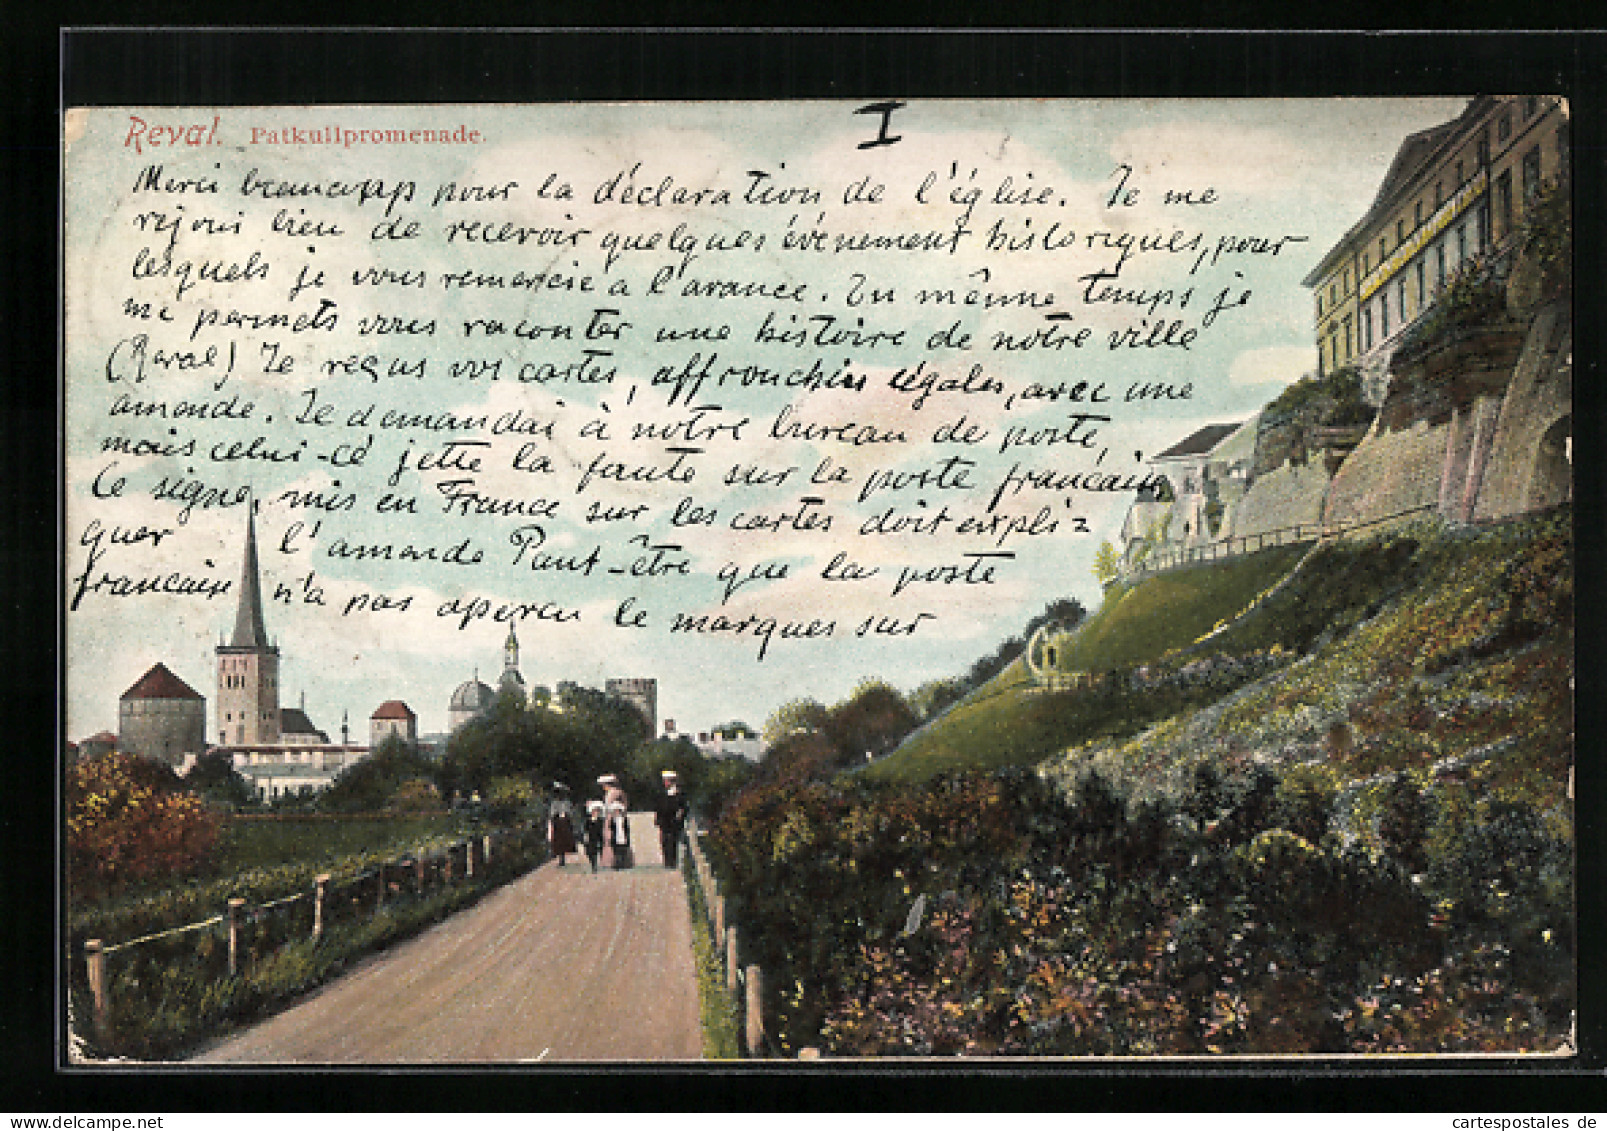 I
Reval. Patkullpromenade.
Merci beaucapp pour la déclaration de l'église. Je me
rejoui bien de recevoir quelques événement historiques, pour
lesquels je vous remercie a l'avance. En mênne temps je
me permets vous raconter une histoire de notre ville
(Reval) Je reçus vos cartes, affronchies légales, avec une
amande. Je demandai à notre bureau de poste,
mais celui-cé jette la faute sur la poste francaise
Ce signe, mis en France sur les cartes doit expli=
quer l'amande Paut-être que la poste
francaise n'a pas apercu le marques sur
cartespostales de